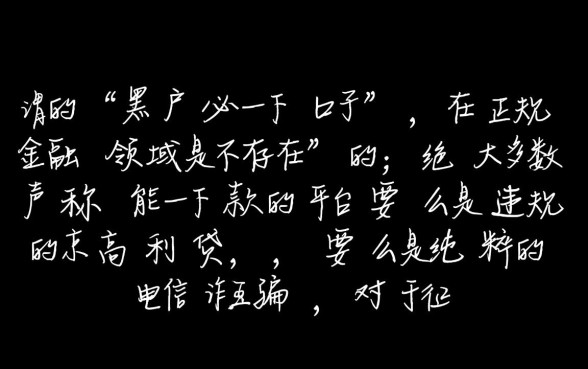 谓的“黑户必一下口子”，在正规
金融领域是不存在”的；绝大多数
声称能一下款的平台要么是违规
的末高利贷，，要么是纯粹的
电信诈骗，对于征